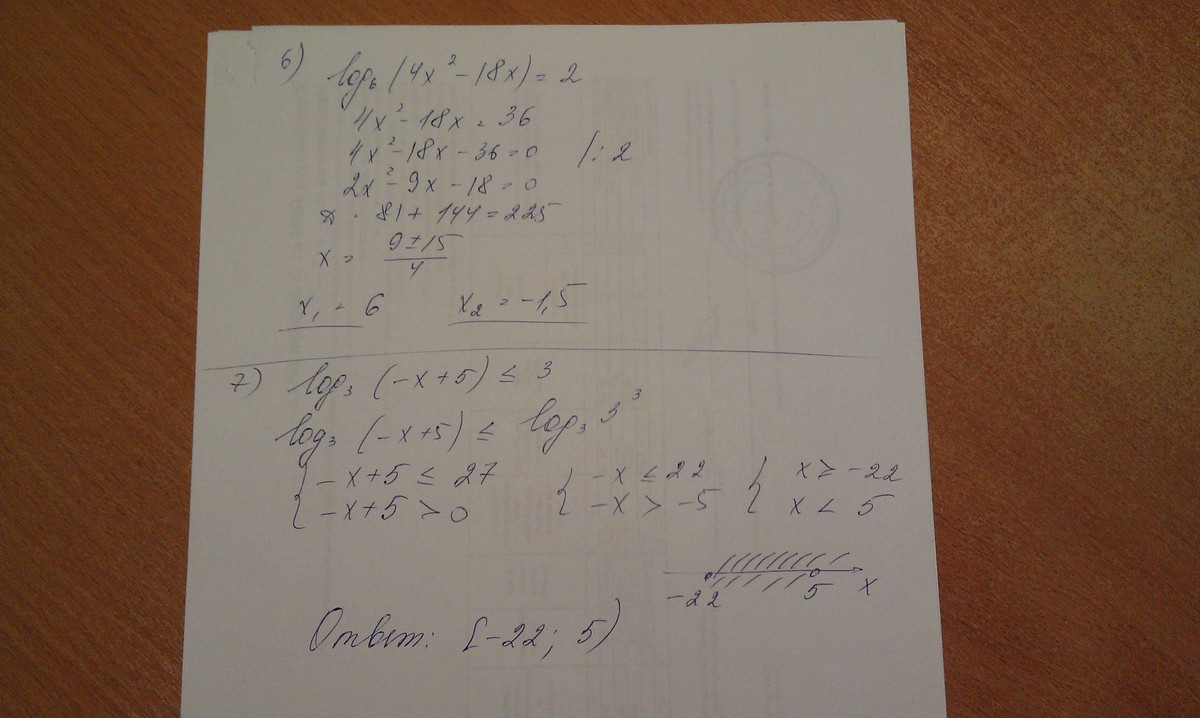 6) log₆ (4x² - 18x) = 2
4x² - 18x = 36
4x² - 18x - 36 = 0 /: 2
2x² - 9x - 18 = 0
81 + 144 = 225
x = (9 ± 15)/4
x₁ = 6 x₂ = -1,5
7) log₃ (-x + 5) ≤ 3
log₃ (-x + 5) ≤ log₃ 3³
{ -x + 5 ≤ 27 { -x ≤ 22 { x ≥ -22
-x + 5 > 0 -x > -5 x < 5
-22 5 x
Ответ: [-22; 5)